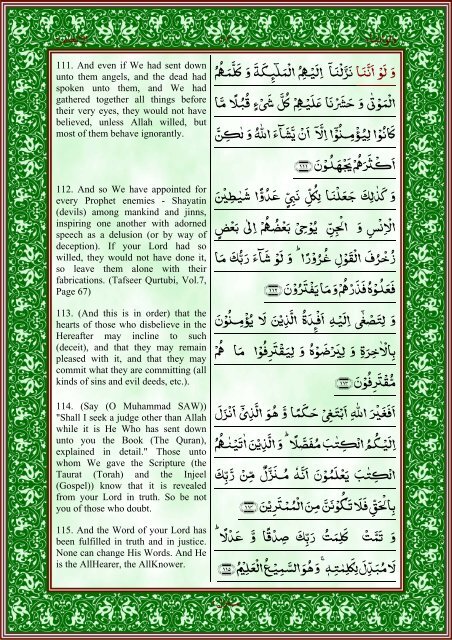 111. And even if We had sent down
unto them angels, and the dead had
spoken unto them, and We had
gathered together all things before
their very eyes, they would not have
believed, unless Allah willed, but
most of them behave ignorantly.
112. And so We have appointed for
every Prophet enemies - Shayatin
(devils) among mankind and jinns,
inspiring one another with adorned
speech as a delusion (or by way of
deception). If your Lord had so
willed, they would not have done it,
so leave them alone with their
fabrications. (Tafseer Qurtubi, Vol.7,
Page 67)
113. (And this is in order) that the
hearts of those who disbelieve in the
Hereafter may incline to such
(deceit), and that they may remain
pleased with it, and that they may
commit what they are committing (all
kinds of sins and evil deeds, etc.).
114. (Say (O Muhammad SAW))
"Shall I seek a judge other than Allah
while it is He Who has sent down
unto you the Book (The Quran),
explained in detail." Those unto
whom We gave the Scripture (the
Taurat (Torah) and the Injeel
(Gospel)) know that it is revealed
from your Lord in truth. So be not
you of those who doubt.
115. And the Word of your Lord has
been fulfilled in truth and in justice.
None can change His Words. And He
is the AllHearer, the AllKnower.
وَ لَوْ اَنَّنَا نَزَّلْنَاۤ اِلَيْهِمُ الْمَلٰٓئِكَةَ وَ كَلَّمَهُمُ
الْمَوْتٰى وَ حَشَرْنَا عَلَيْهِمْ كُلَّ شَيْءٍ قُبُلًا مَّا
كَانُوْا لِيُؤْمِنُوْۤا اِلَّاۤ اَنْ يَّشَآءَ اللّٰهُ وَ لٰكِنَّ
اَكْثَرَهُمْ يَجْهَلُوْنَ ﴿۱۱۱﴾
وَ كَذٰلِكَ جَعَلْنَا لِكُلِّ نَبِيٍّ عَدُوًّا شَيٰطِيْنَ
الْاِنْسِ وَ الْجِنِّ يُوْحِيْ بَعْضُهُمْ اِلٰى بَعْضٍ
زُخْرُفَ الْقَوْلِ غُرُوْرًا ؕ وَ لَوْ شَآءَ رَبُّكَ مَا
فَعَلُوْهُ فَذَرْهُمْ وَ مَا يَفْتَرُوْنَ ﴿۱۱۲﴾
وَ لِتَصْغٰۤى اِلَيْهِ اَفْـِٕدَةُ الَّذِيْنَ لَا يُؤْمِنُوْنَ
بِالْاٰخِرَةِ وَ لِيَرْضَوْهُ وَ لِيَقْتَرِفُوْا مَا هُمْ
مُّقْتَرِفُوْنَ ﴿۱۱۳﴾
اَفَغَيْرَ اللّٰهِ اَبْتَغِيْ حَكَمًا وَّ هُوَ الَّذِيْۤ اَنْزَلَ
اِلَيْكُمُ الْكِتٰبَ مُفَصَّلًا ؕ وَ الَّذِيْنَ اٰتَيْنٰهُمُ
الْكِتٰبَ يَعْلَمُوْنَ اَنَّهٗ مُنَزَّلٌ مِّنْ رَّبِّكَ
بِالْحَقِّ فَلَا تَكُوْنَنَّ مِنَ الْمُمْتَرِيْنَ ﴿۱۱۴﴾
وَ تَمَّتْ كَلِمَتُ رَبِّكَ صِدْقًا وَّ عَدْلًا ؕ
لَا مُبَدِّلَ لِكَلِمٰتِهٖ ۚ وَ هُوَ السَّمِيْعُ الْعَلِيْمُ ﴿۱۱۵﴾